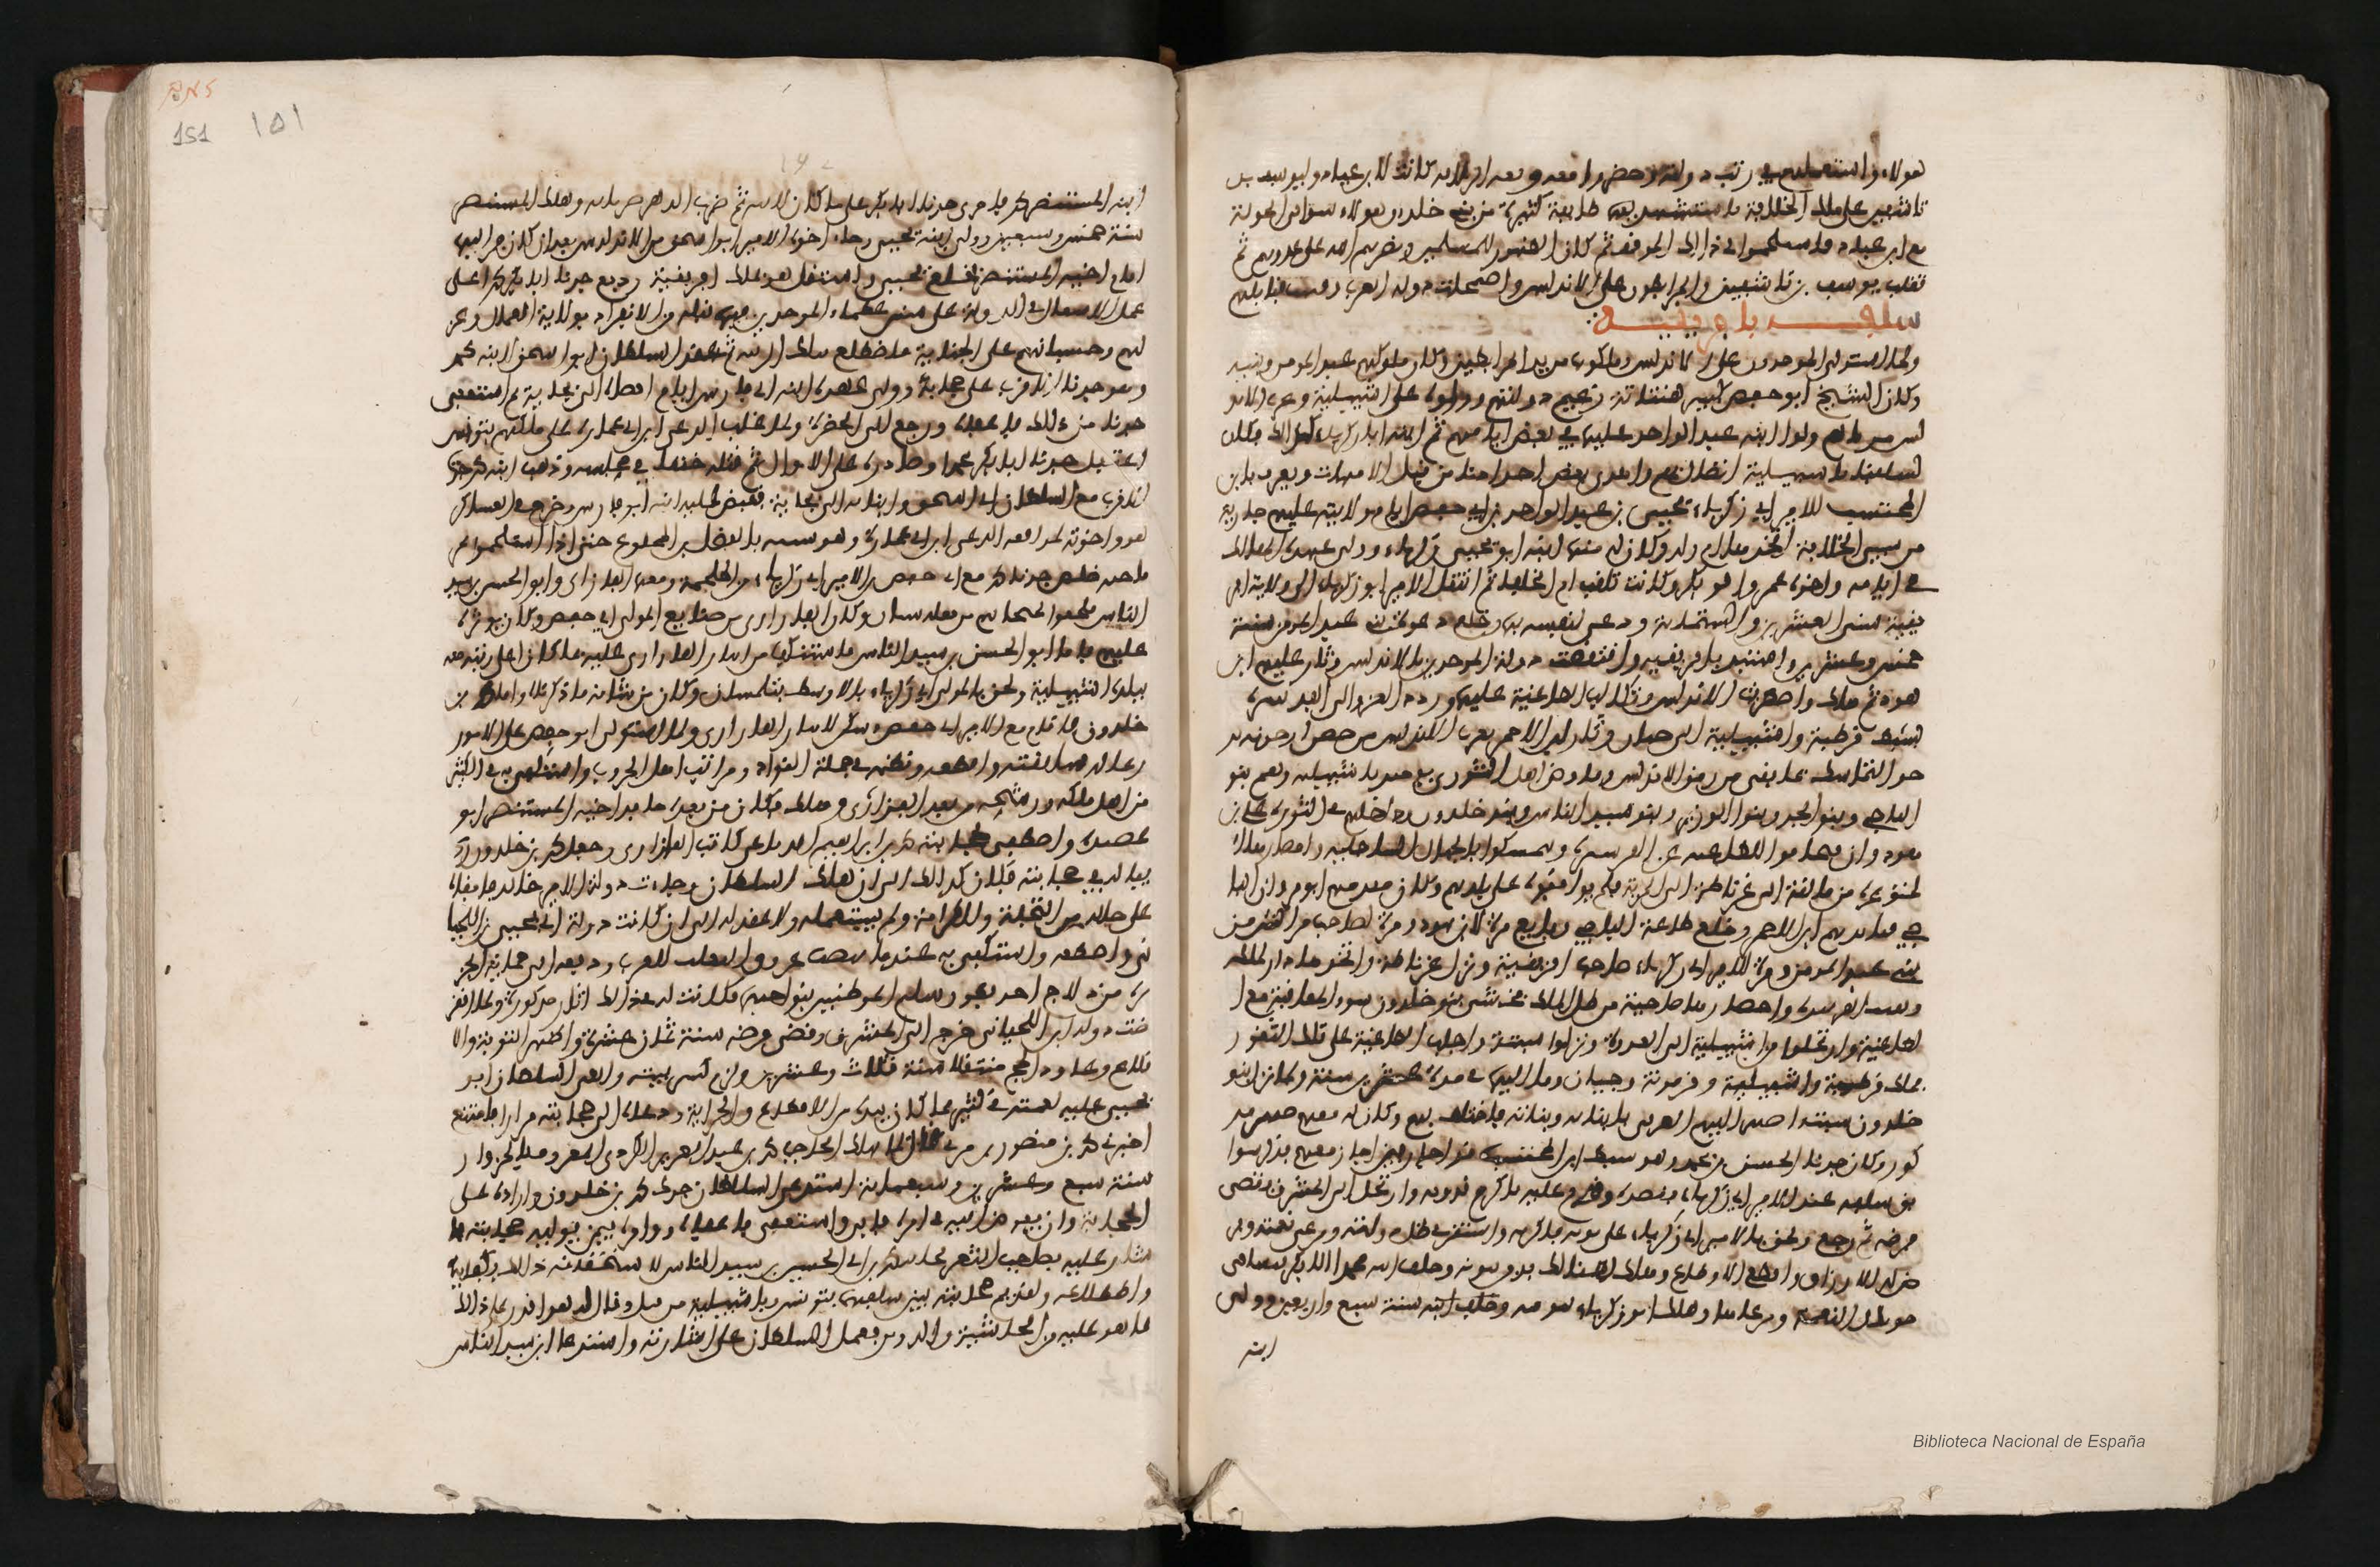 هولاء واستعملهم في رتب دولته وحضروا معه وقعة الزلاقة كانت لابن عباد وليوسف بن
تاشفين على ملك الجلالقة فاستشهد فيها طايفة كثيرة من بني خلدون هولاء ثبتوا في الجولة
مع ابن عباد فاستلحموا في ذلك الموقف ثم كان الظهور للمسلمين ونصرهم الله على عدوهم ثم
تغلب يوسف بن تاشفين والمرابطون على الاندلس واضمحلت دولة العرب وفنيت قبايلهم
سلفه بافريقية
ولما استولى الموحدون على الاندلس وملكوها من يد المرابطين وكان ملوكهم عبد المومن وبنيه
وكان الشيخ ابو حفص كبير هنتاتة زعيم دولتهم وولوه على اشبيلية وغرب الاندلس
مرارا ثم ولوا ابنه عبد الواحد عليها في بعض ايامهم ثم ابنه ابا زكرياء كذلك فكان
لسلفنا باشبيلية اتصال بهم واهدى بعض اجدادنا من قبل الامهات ويعرف بابن
المحتسب للامير ابي زكرياء يحيى بن عبد الواحد بن ابي حفص ايام ولايته عليهم جارية
من سبي الجلالقة اتخذها ام ولد وكان له منها ابنه ابو يحيى زكرياء ولي عهده الهالك
في ايامه واخواه عمر وابو بكر وكانت تلقب ام الخلفاء ثم انتقل الامير ابو زكرياء الى ولاية افر
يقية سنة العشرين والستماية ودعى لنفسه بها وخلع دعوة بني عبد المومن سنة
خمس وعشرين واستبد بافريقية وانتقضت دولة الموحدين بالاندلس وثار عليهم ابن
هود ثم هلك واضطربت الاندلس وتكالب الطاغية عليها وردد الغزو الى الفرنتيرة
بسيط قرطبة واشبيلية الى جيان وثار ابن الاحمر بغرب الاندلس من حصن ارجونة ير
جو التماسك بما بقي من رمق الاندلس وفاوض اهل الشورى يوميذ باشبيلية وهم بنو
الباجي وبنو الجد وبنو الوزير وبنو سيد الناس وبنو خلدون وداخلهم في الثورة على ابن
هود وان يتجافوا للطاغية عن الفرنتيرة ويتمسكوا بالجبال الساحلية وامصارها
المتوعرة من مالقة الى غرناطة الى المرية فلم يوافقوه على بلادهم وكان مقدمهم ابو مروان البا
جي فنابذهم ابن الاحمر وخلع طاعة الباجي وبايع مرة لابن هود ومرة لصاحب مراكش من
بني عبد المومن ومرة للامير ابي زكرياء صاحب افريقية ونزل غرناطة واتخذها دار لملكه
وبقيت الفرنتيرة وامصارها ضاحية من ظل الملك فخشي بنو خلدون سوء العاقبة مع ا
لطاغية وارتحلوا من اشبيلية الى العدوة ونزلوا سبتة واجلب الطاغية على تلك الثغور
فملك قرطبة واشبيلية وقرمونة وجيان وما اليها في مدة عشرين سنة ولما نزل بنو
خلدون سبتة اصهر اليهم العزفي بابنايه وبناته فاختلط بهم وكان له معهم صهر مذ
كور وكان جدنا الحسن بن محمد وهو سبط ابن المحتسب قد اجاز فيمن اجاز معهم فذكروا
بن سلفه عند الامير ابي زكرياء فقصده وقدم عليه فاكرم قدومه وارتحل الى المشرق فقضى
فرضه ثم رجع ولحق بالامير ابي زكرياء على بونة فاكرمه واستقر في ظل دولته ومرعى نعمته وفر
ض له الارزاق واقطع الاقطاع وهلك هنالك فدفن ببونة وخلف ابنه محمدا ابا بكر فنشا في
جو تلك النعمة ومرعاها وهلك ابو زكرياء ببونة وخلف ابنه سنة سبع واربعين وولى
ابنه
سنة خمس وسبعين وولى ابنه يحيى وجاء اخوه الامير ابو اسحق من الاندلس بعد ان كان فر اليها
امام اخيه المستنصر فخلع يحيى واستقل هو بملك افريقية ودفع جدنا ابا بكر محمدا على
عمل الاشغال في الدولة على سنن عظماء الموحدين فيها قبله من الانفراد بولاية العمال وعز
لهم وحسبانهم على الجباية فاضطلع بتلك الرتبة ثم عقد السلطان ابو اسحق لابنه محمد
وهو جدنا الاقرب على حجابة ولي عهده ابنه ابي فارس ايام اقصاه الى بجاية ثم استعفى
جدنا من ذلك فاعفاه ورجع الى الحضرة ولما غلب الدعي ابن ابي عمارة على ملكهم بتونس
اعتقل جدنا ابا بكر محمدا وصادره على الاموال ثم قتله خنقا في محبسه وذهب ابنه محمد جدنا
الاقرب مع السلطان ابي اسحق وابنايه الى بجاية فقبض عليه ابنه ابو فارس وخرج في العساكر
هو واخوته لمدافعة الدعي ابن ابي عمارة وهو يشبه بالفضل بن المخلوع حتى اذا استلحموا بمر
ماجنة خلص جدنا محمد مع ابي حفص ابن الامير ابي زكرياء من الملحمة ومعهما الفازازي وابو الحسن بن سيد
الناس فلحقوا بمنجاتهم من قلعة سنان وكان الفازازي من صنايع المولى ابي حفص وكان يوثره
عليهم فاما ابو الحسن بن سيد الناس فاستنكف من ايثار الفازازي عليه بما كان اعلى رتبة منه
ببلده اشبيلية ولحق بالمولى ابي زكرياء الاوسط بتلمسان وكان من شانه ما ذكرناه واما محمد بن
خلدون فاقام مع الامير ابي حفص وسكن لايثار الفازازي ولما استولى ابو حفص على الامور
رعى له سابقته واقطعه ونظمه في جملة القواد ومراتب اهل الحروب واستكفى به في الكثير
من امر ملكه ورشحه من بعد الفازازي وهلك فكان من بعده حافد اخيه المستنصر ابو
عصيدة واصطفى لحجابته محمد بن ابراهيم الدباغ كاتب الفازازي وجعل محمد بن خلدون رد
يفا له في حجابته فكان كذلك الى ان هلك السلطان وجاءت دولة الامير خالد فابقاه
على حاله من التجلة والكرامة ولم يستعمله ولا عقد له الى ان كانت دولة ابي يحيى بن اللحيا
ني واصطنعه واستكفى به عندما عروق التغلب للعرب ودفعه الى حماية الجز
يرة من دلاج احد بطون سليم الموطنين بنواحيها فكانت له في ذلك اثار مذكورة ولما انقر
ضت دولة ابن اللحياني خرج الى المشرق وقضى فرضه سنة ثمان عشرة واظهر التوبة والا
قلاع وعاود الحج متنفلا سنة ثلاث وعشرين ولزم كسر بيته وابقى السلطان ابو
يحيى عليه نعمته في كثير مما كان بيده من الاقطاع والجراية ودعاه الى حجابته مرارا فامتنع
اخبرني محمد بن منصور بن مزني قال لما هلك الحاجب محمد بن عبد العزيز الكردي المعروف بالمزوار
سنة سبع وعشرين وسبعماية استدعى السلطان جدك محمد بن خلدون واراده على
الحجابة وان يفوض اليه في امره فابى واستعفى فاعفاه ووامره فيمن يوليه حجابته فا
شار عليه بصاحب الثغر بجاية محمد بن ابي الحسين بن سيد الناس لاستحقاقه ذلك بكفايته
واضطلاعه ولقديم صحابته بين سلفهما بتونس وباشبيلية من قبل وقال له هو اقدر على ذلك
بما هو عليه من الحاشية والدين فعمل السلطان على اشارته واستدعا ابن سيد الناس
151
١٥١
Biblioteca Nacional de España